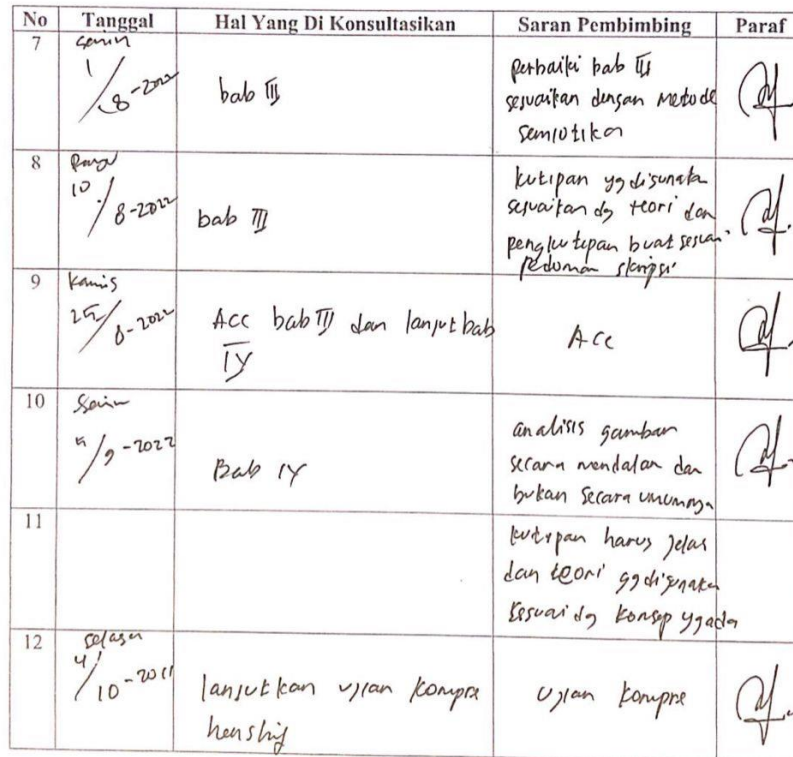 No Tanggal Hal Yang Di Konsultasikan Saran Pembimbing Paraf
7
Senin
1/8-2022
bab III
perbaiki bab III
sesuaikan dengan metode
semiotika
8
10/8-2022
bab III
kutipan yg digunaka
sesuaikan dg teori dan
pengkutipan buat sesuai
pedoman skripsi
9
Kamis
25/8-2022
Acc bab III dan lanjut bab
IV
Acc
10
Senin
5/9-2022
Bab IV
analisis gambar
secara mendalam dan
bukan secara umumnya
11
kutipan harus jelas
dan teori yg digunakan
sesuai dg konsep yg ada
12
selasa
4/10-2011
lanjutkan ujian kompre
henship
Ujian kompre